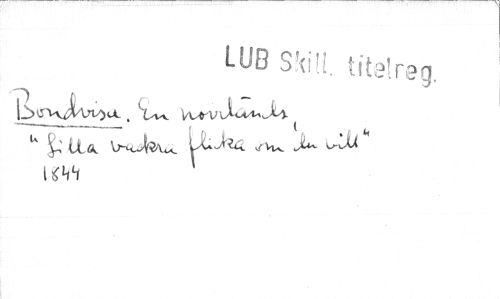 LUB Skill. titelreg.
Bondvisa. En norrländs,
"Lilla vackra flicka om du vill"
1844